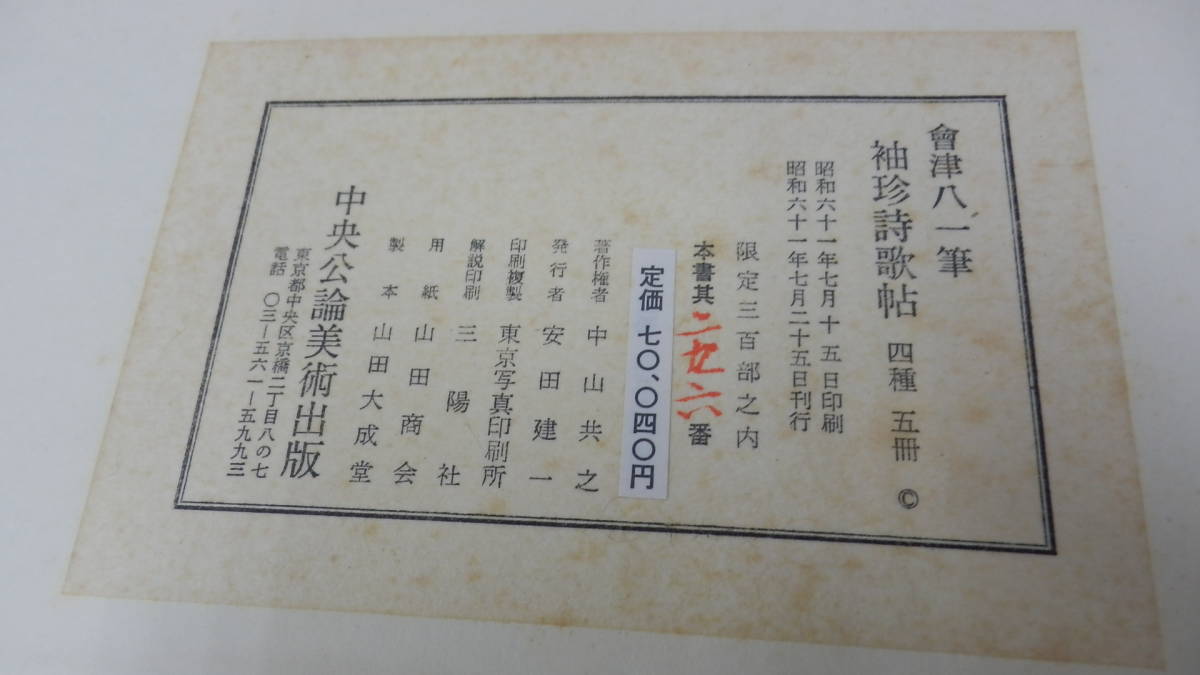 會津八一筆
袖珍詩歌帖 四種 五冊 ©
昭和六十一年七月十五日印刷
昭和六十一年七月二十五日刊行
限定三百部之内
本書其二廿六番
定価 七〇、〇四〇円
著作権者 中山共之
発行者 安田建一
印刷複製 東京写真印刷所
解説印刷 三陽社
用紙 山田商会
製本 山田大成堂
中央公論美術出版
東京都中央区京橋二丁目八の七
電話 〇三―五六一―五九九三